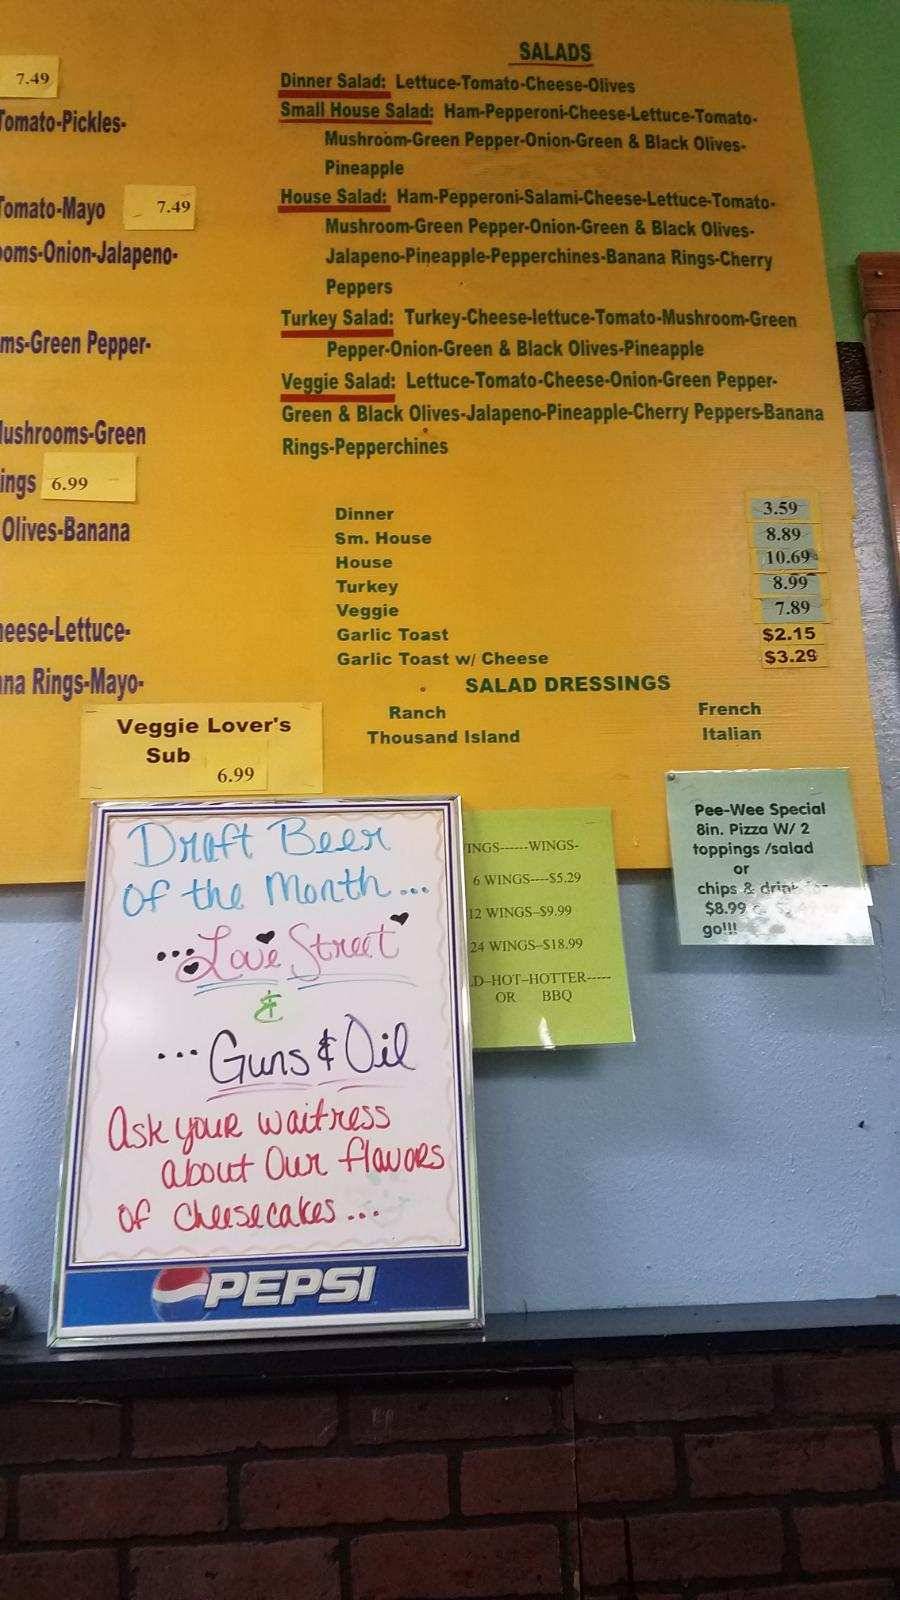 7.49
Tomato-Pickles-
Tomato-Mayo 7.49
ooms-Onion-Jalapeno-
ms-Green Pepper-
Mushrooms-Green
ings 6.99
Olives-Banana
heese-Lettuce-
na Rings-Mayo-
Veggie Lover's
Sub
6.99
SALADS
Dinner Salad: Lettuce-Tomato-Cheese-Olives
Small House Salad: Ham-Pepperoni-Cheese-Lettuce-Tomato-
Mushroom-Green Pepper-Onion-Green & Black Olives-
Pineapple
House Salad: Ham-Pepperoni-Salami-Cheese-Lettuce-Tomato-
Mushroom-Green Pepper-Onion-Green & Black Olives-
Jalapeno-Pineapple-Pepperchines-Banana Rings-Cherry
Peppers
Turkey Salad: Turkey-Cheese-lettuce-Tomato-Mushroom-Green
Pepper-Onion-Green & Black Olives-Pineapple
Veggie Salad: Lettuce-Tomato-Cheese-Onion-Green Pepper-
Green & Black Olives-Jalapeno-Pineapple-Cherry Peppers-Banana
Rings-Pepperchines
Dinner 3.59
Sm. House 8.89
House 10.69
Turkey 8.99
Veggie 7.89
Garlic Toast $2.15
Garlic Toast w/ Cheese $3.29
SALAD DRESSINGS
Ranch French
Thousand Island Italian
Draft Beer
Of the Month...
...Love Street
&
...Guns & Oil
Ask your waitress
about Our flavors
of cheesecakes...
PEPSI
INGS------WINGS-
6 WINGS----$5.29
12 WINGS–$9.99
24 WINGS–$18.99
LD–HOT–HOTTER-----
OR BBQ
Pee-Wee Special
8in. Pizza W/ 2
toppings /salad
or
chips & drink
$8.99
go!!!